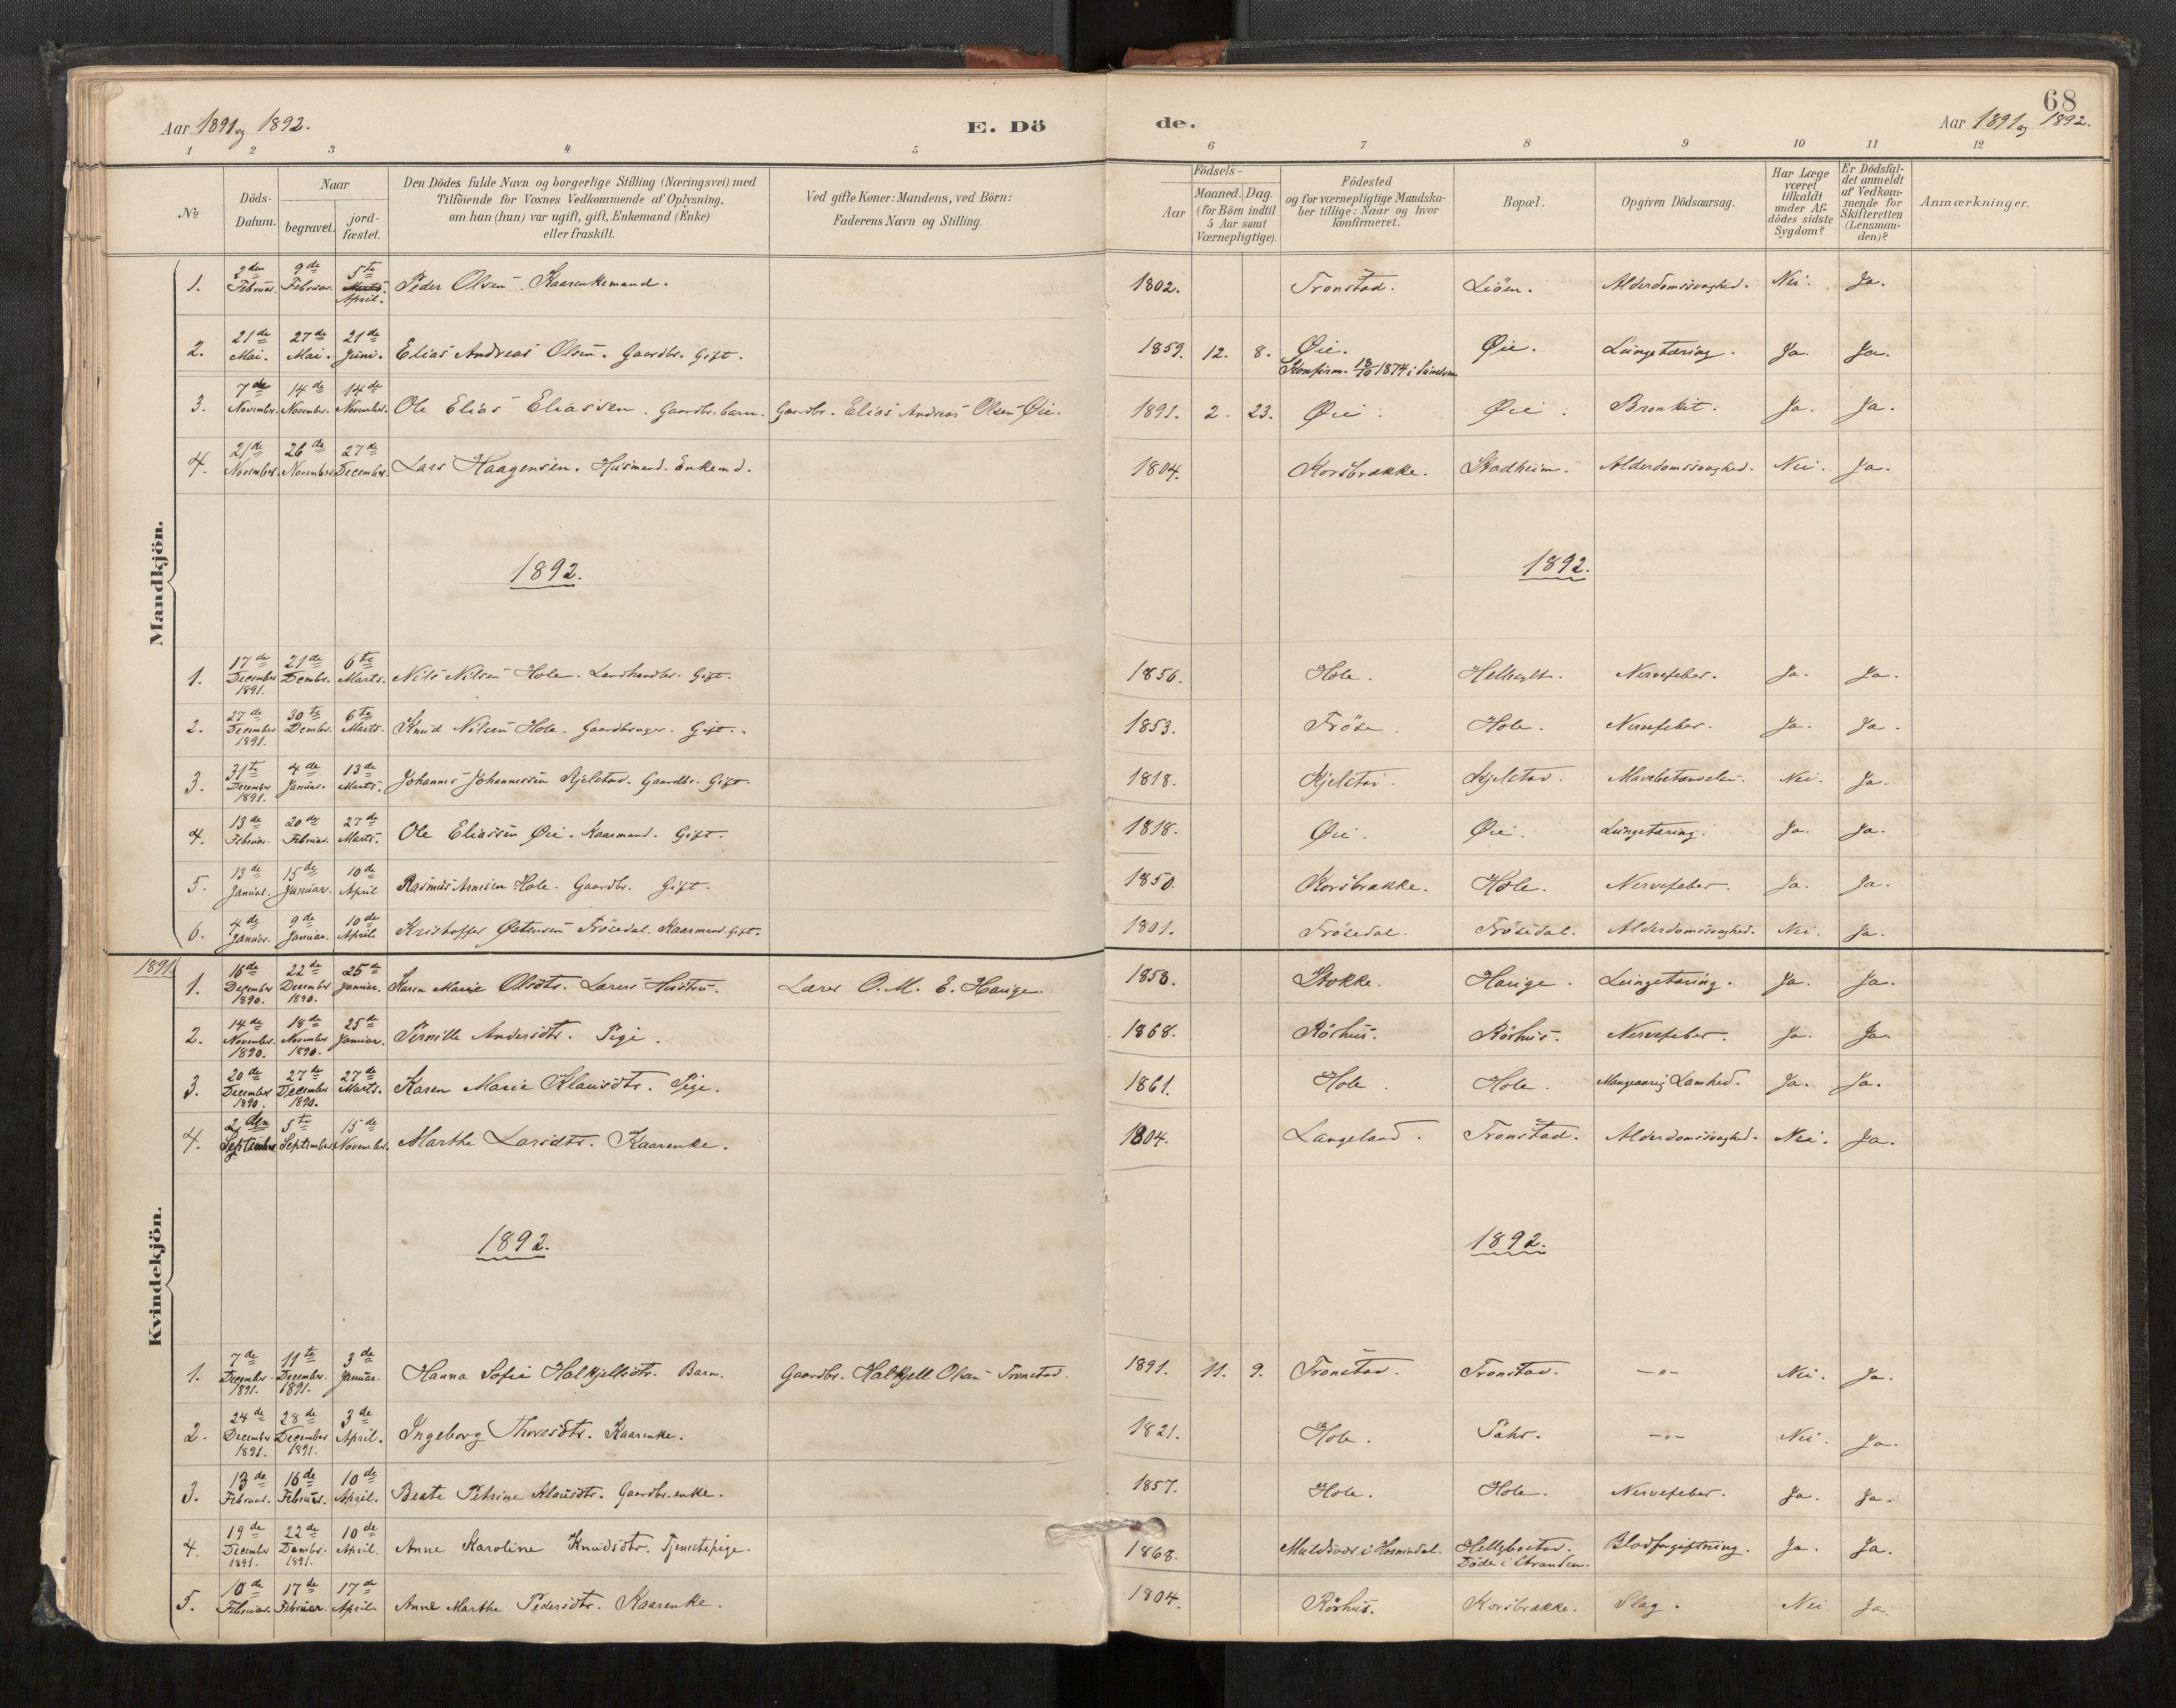 68
Aar 1891 og 1892. E. Dö de. Aar 1891 og 1892.
1 2 3 4 5 6 7 8 9 10 11 12
No
Döds-Datum.
Naar
begravet.
jord-fæstet.
Den Dödes fulde Navn og borgerlige Stilling (Næringsvei) med
Tilföiende for Voxnes Vedkommende af Oplysning,
om han (hun) var ugift, gift, Enkemand (Enke)
eller fraskilt.
Ved gifte Koner: Mandens, ved Börn:
Faderens Navn og Stilling.
Födsels-
Aar
Maaned. Dag.
(for Börn indtil
5 Aar samt
Værnepligtige).
Födested
og for værnepligtige Mandska-
ber tillige: Naar og hvor
konfirmeret.
Bopæl.
Opgiven Dödsaarsag.
Har Læge
været
tilkaldt
under Af-
dödes sidste
Sygdom?
Er Dödsfal-
det anmeldt
af Vedkom-
mende for
Skifteretten
(Lensman-
den)?
Anmærkninger.
Mandkjön.
1. 2den Februar. 9de Februar. 5te Marts. April. Peder Olsen. Kaarenkemand. 1802. Tronstad. Liöen. Alderdomssvaghed. Nei. Ja.
2. 21de Mai. 27de Mai. 21de Juni. Elias Andreas Olsen. Gaardbr. Gift. 1859. 12. 8. Øie. Konfirm. 1874 i Øie. Lungetæring. Ja. Ja.
3. 7de November. 14de November. 14de November. Ole Elias Eliassen. Gaardbr. barn. Gaardbr. Elias Andreas Olsen Øie. 1891. 2. 23. Øie. Øie. Bronkit. Ja. Ja.
4. 21de November. 26de November. 27de December. Lars Haagensen. Husmand. Enkemd. 1804. Korsbrække. Stadheim. Alderdomssvaghed. Nei. Ja.
1892. 1892.
1. 17de December 1891. 21de Dembr. 6te Marts. Nils Nilsen Hole. Landhandler. Gift. 1856. Hole. Hellesylt. Nervefeber. Ja. Ja.
2. 27de December 1891. 30te Dembr. 6te Marts. Knud Nilsen Hole. Gaardbruger. Gift. 1853. Fröse. Hole. Nervefeber. Ja. Ja.
3. 31te December 1891. 4de Januar. 13de Marts. Johannes Johannessen Kjelstad. Gaardbr. Gift. 1818. Kjelstad. Kjelstad. Mavebetændelse. Nei. Ja.
4. 13de Februar. 20de Februar. 27de Marts. Ole Eliassen Øie. Kaarmand. Gift. 1818. Øie. Øie. Lungetæring. Ja. Ja.
5. 13de Januar. 15de Januar. 10de April Rasmus Arnesen Hole. Gaardbr. Gift. 1850. Korsbrække. Hole. Nervefeber. Ja. Ja.
6. 4de Januar. 9de Januar. 10de April. Kristoffer Østensen Frösedal. Kaarmand. Gift. 1801. Frösedal. Frösedal. Alderdomssvaghed. Nei. Ja.
Kvindekjön.
1891.
1. 16de December 1890. 22de December 1890. 25de Januar. Karen Marie Olsdtr. Lærers Hustru. Lærer O. M. E. Hauge. 1858. Stokke. Hauge. Lungetæring. Ja. Ja.
2. 14de November. 1890. 18de November 1890. 25de Januar. Pernille Andersdtr. Pige. 1868. Rörhus. Rörhus. Nervefeber. Ja. Ja.
3. 20de December 1890. 27de December 1890. 27de Marts. Karen Marie Klausdtr. Pige. 1861. Hole. Hole. Mangeaarig Lamhed. Ja. Ja.
4. 2den September 5te September 15de November. Marthe Larsdtr. Kaarenke. 1804. Langeland. Tronstad. Alderdomssvaghed. Nei. Ja.
1892. 1892.
1. 7de December. 1891. 11te December. 1891. 3de Januar. Hanna Sofie Halkjellsdtr. Barn. Gaardbr. Halkjell Olsen Tronstad. 1891. 11. 9. Tronstad. Tronstad. -"- Nei. Ja.
2. 24de December 1891. 28de December 1891. 3de April. Ingeborg Thoresdtr. Kaarenke. 1821. Hole. -"- Nei. Ja.
3. 13de Februar. 16de Februar. 10de April. Beate Petrine Klausdtr. Gaardbr. enke. 1857. Hole. Hole. Nervefeber. Ja. Ja.
4. 19de December 1891. 22de Dembr. 1891. 10de April. Anne Karoline Knudsdtr. Tjenestepige. 1868. i Hornindal. Döde i Stranden. Blodforgiftning. Ja. Ja.
5. 10de Februar. 17de Februar. 17de April. Anne Marthe Pedersdtr. Kaarenke. 1804. Rörhus. Korsbrække. Slag. Nei Ja.